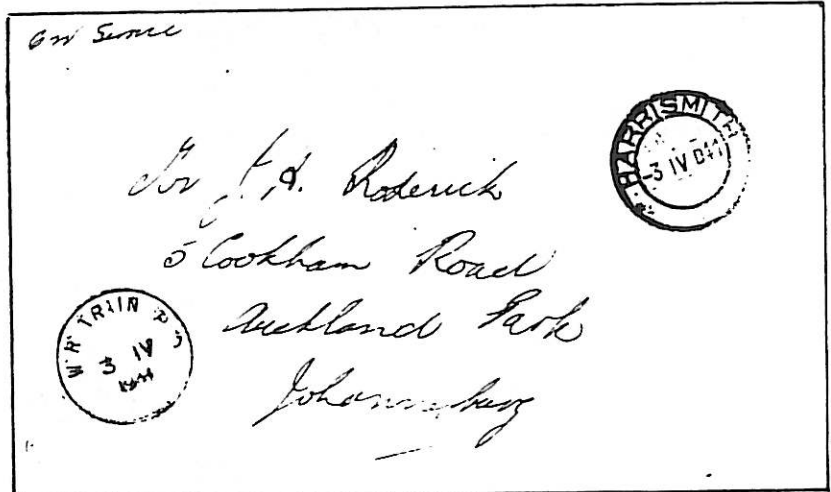 On Service
HARRISMITH
-3 IV 041
J. H. Roderick
5 Cookham Road
Auckland Park
Johannesburg
TRAIN
3 IV
1941